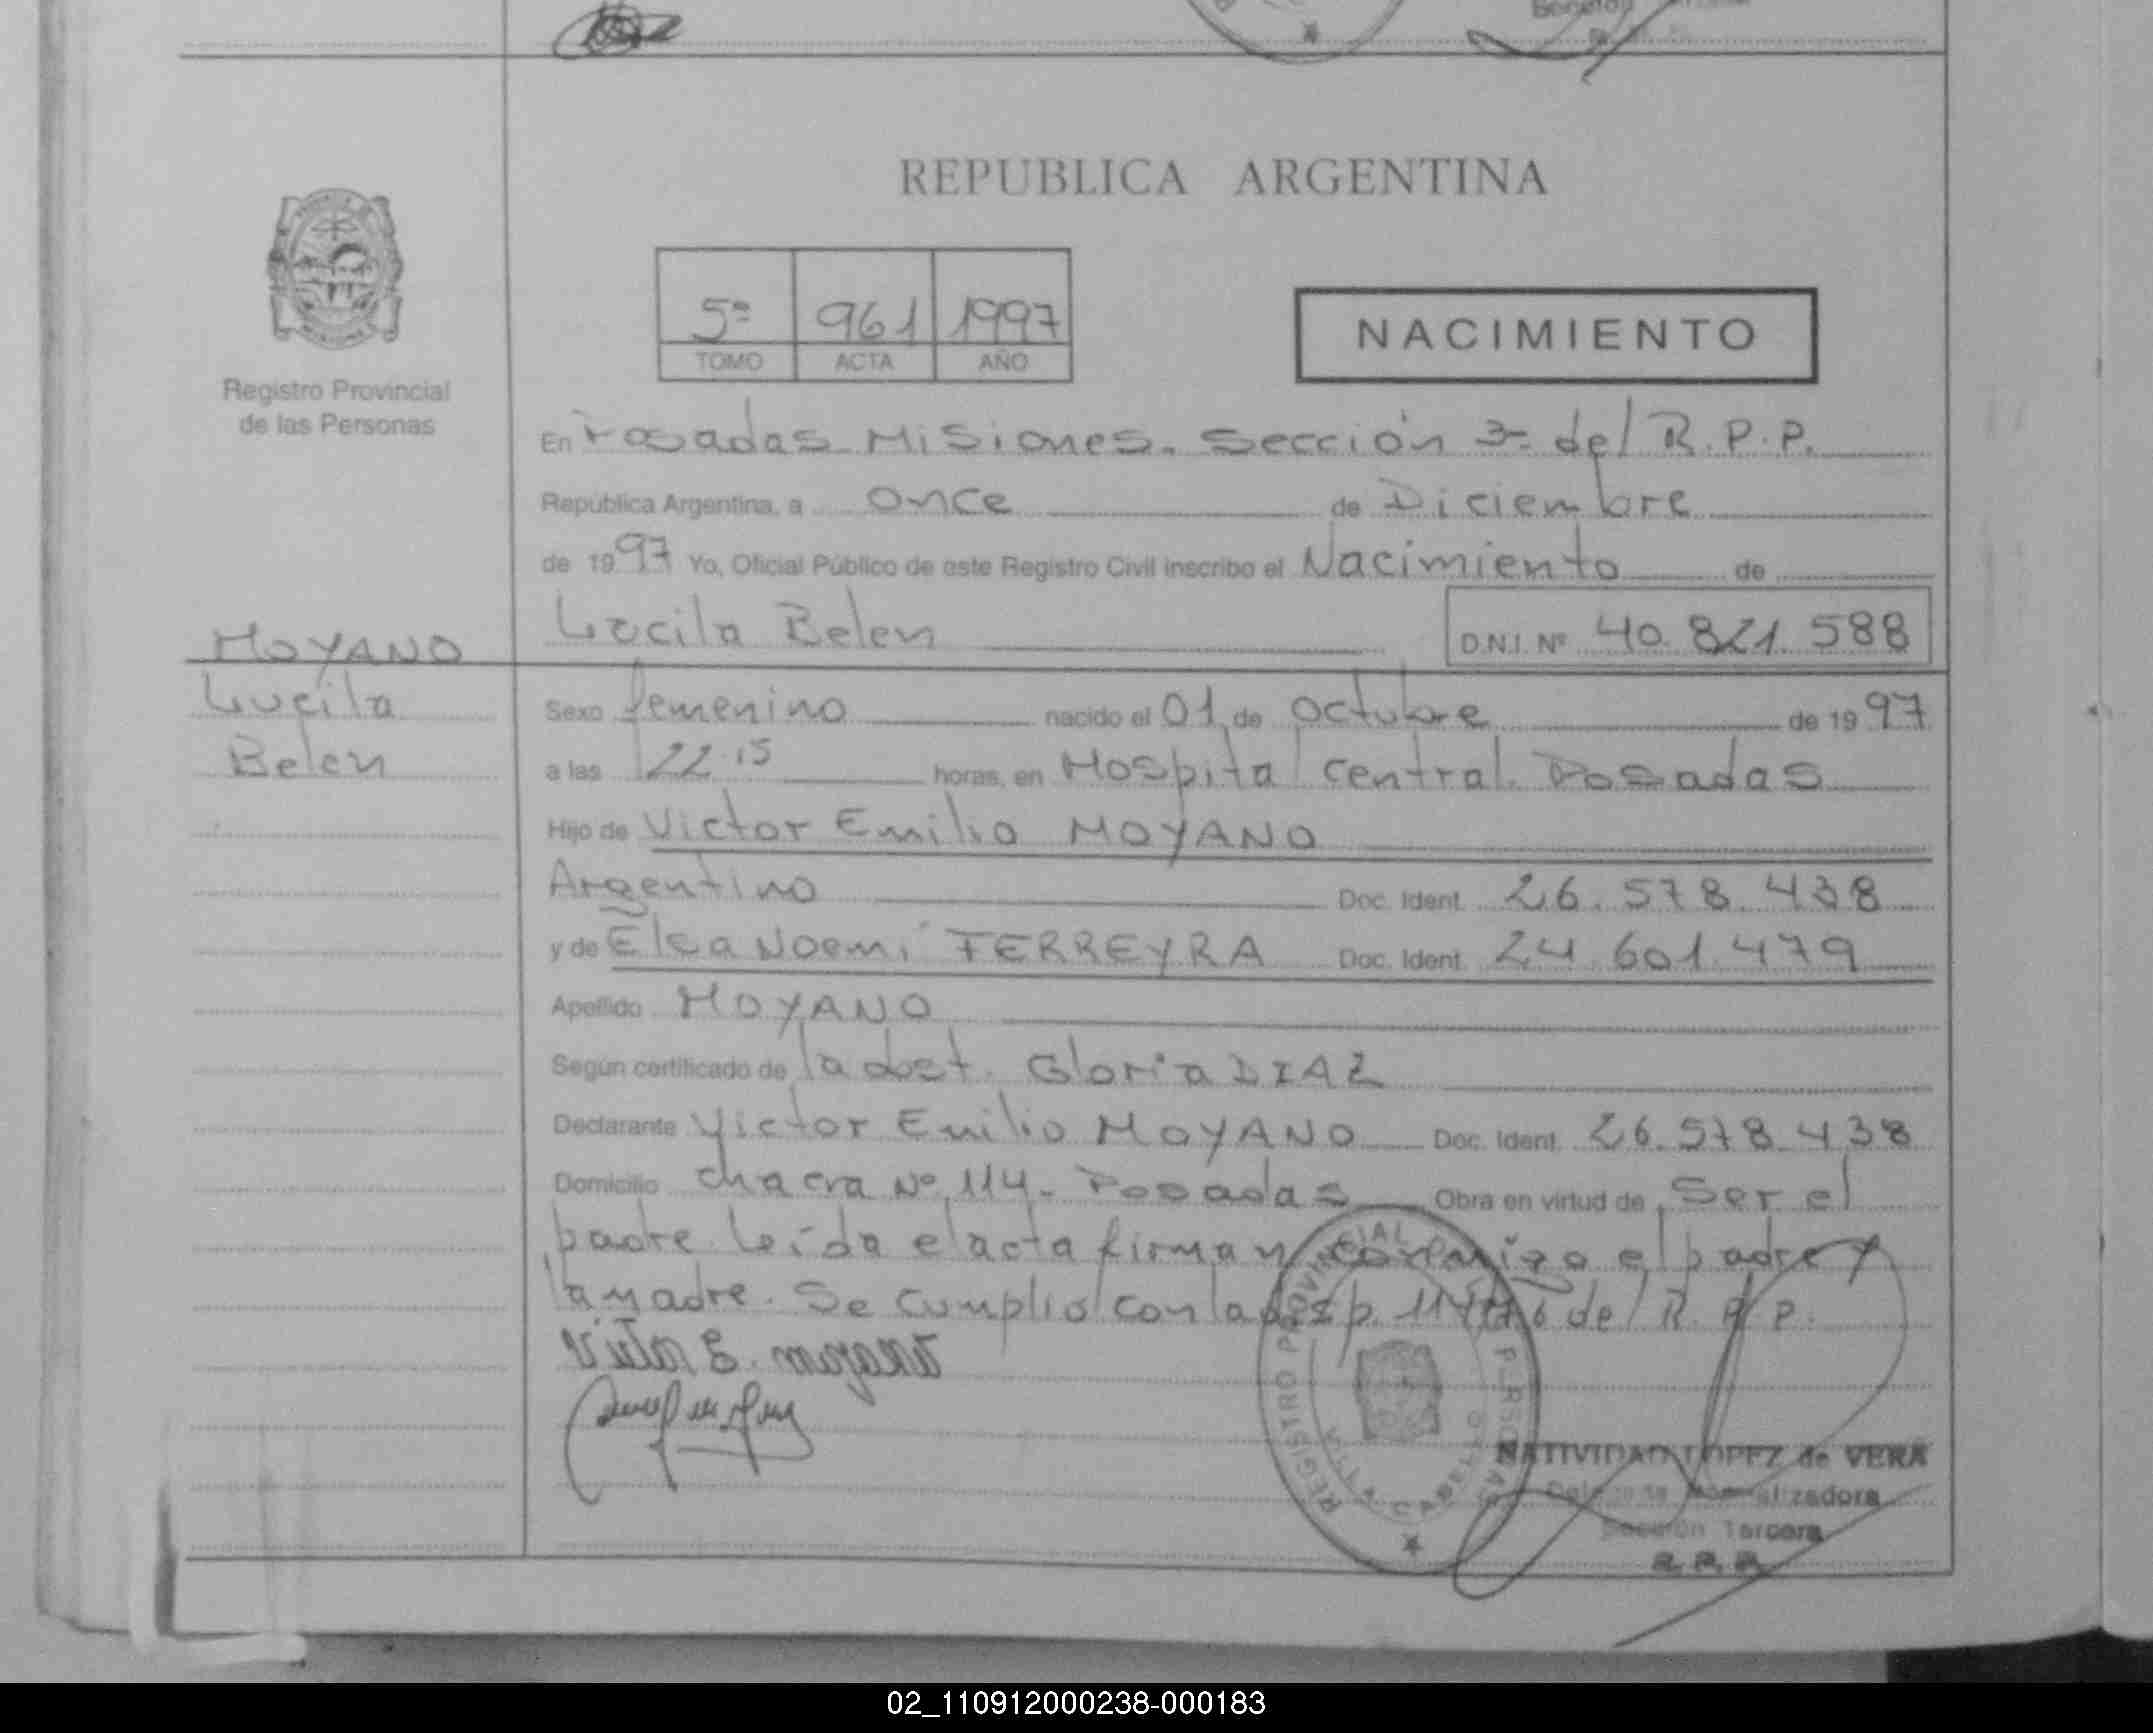 REPUBLICA ARGENTINA
5º 961 1997
TOMO ACTA AÑO
NACIMIENTO
Registro Provincial
de las Personas
En Posadas Misiones. Sección 3º del R.P.P.
República Argentina, a once de Diciembre
de 1997 Yo, Oficial Público de este Registro Civil inscribo el Nacimiento de
Lucila Belen D.N.I. Nº 40.821.588
MOYANO
Lucila
Belen
Sexo femenino nacido el 01 de Octubre de 1997
a las 22.15 horas, en Hospital Central. Posadas
Hijo de Victor Emilio MOYANO
Argentino Doc. Ident. 26.578.438
y de Elsa Noemí FERREYRA Doc. Ident. 24.601.479
Apellido MOYANO
Según certificado de la obst. Gloria DIAZ
Declarante Victor Emilio MOYANO Doc. Ident. 26.578.438
Domicilio chacra Nº 114. Posadas Obra en virtud de ser el
padre leída el acta firman conmigo el padre y
la madre. Se cumplió con la disp. del R.P.P.
Victor E. moyano
REGISTRO PROVINCIAL PERSONAS
VILLA CABELLO
NATIVIDAD LOPEZ de VERA
Sección Tercera
R.P.P.
02_110912000238-000183